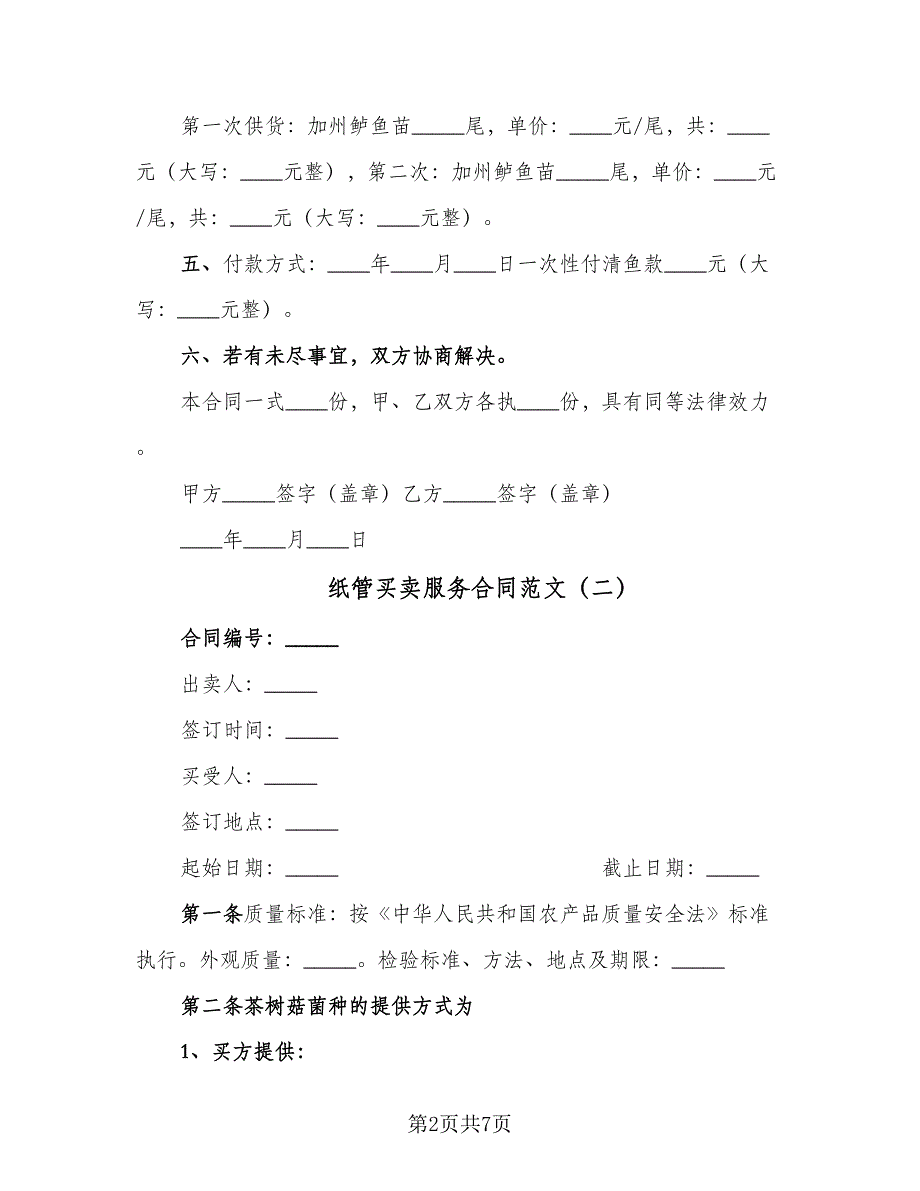 第一次供货：加州鲈鱼苗_____尾，单价：____元/尾，共：____
元（大写：____元整），第二次：加州鲈鱼苗_____尾，单价：____元
/尾，共：____元（大写：____元整）。
五、付款方式：____年____月____日一次性付清鱼款____元（大
写：____元整）。
六、若有未尽事宜，双方协商解决。
本合同一式____份，甲、乙双方各执____份，具有同等法律效力
。
甲方_____签字（盖章）乙方_____签字（盖章）
____年____月____日
纸管买卖服务合同范文（二）
合同编号：_____
出卖人：_____
签订时间：_____
买受人：_____
签订地点：_____
起始日期：_____ 截止日期：_____
第一条质量标准：按《中华人民共和国农产品质量安全法》标准
执行。外观质量：_____。检验标准、方法、地点及期限：_____
第二条茶树菇菌种的提供方式为
1、买方提供：
第2页共7页